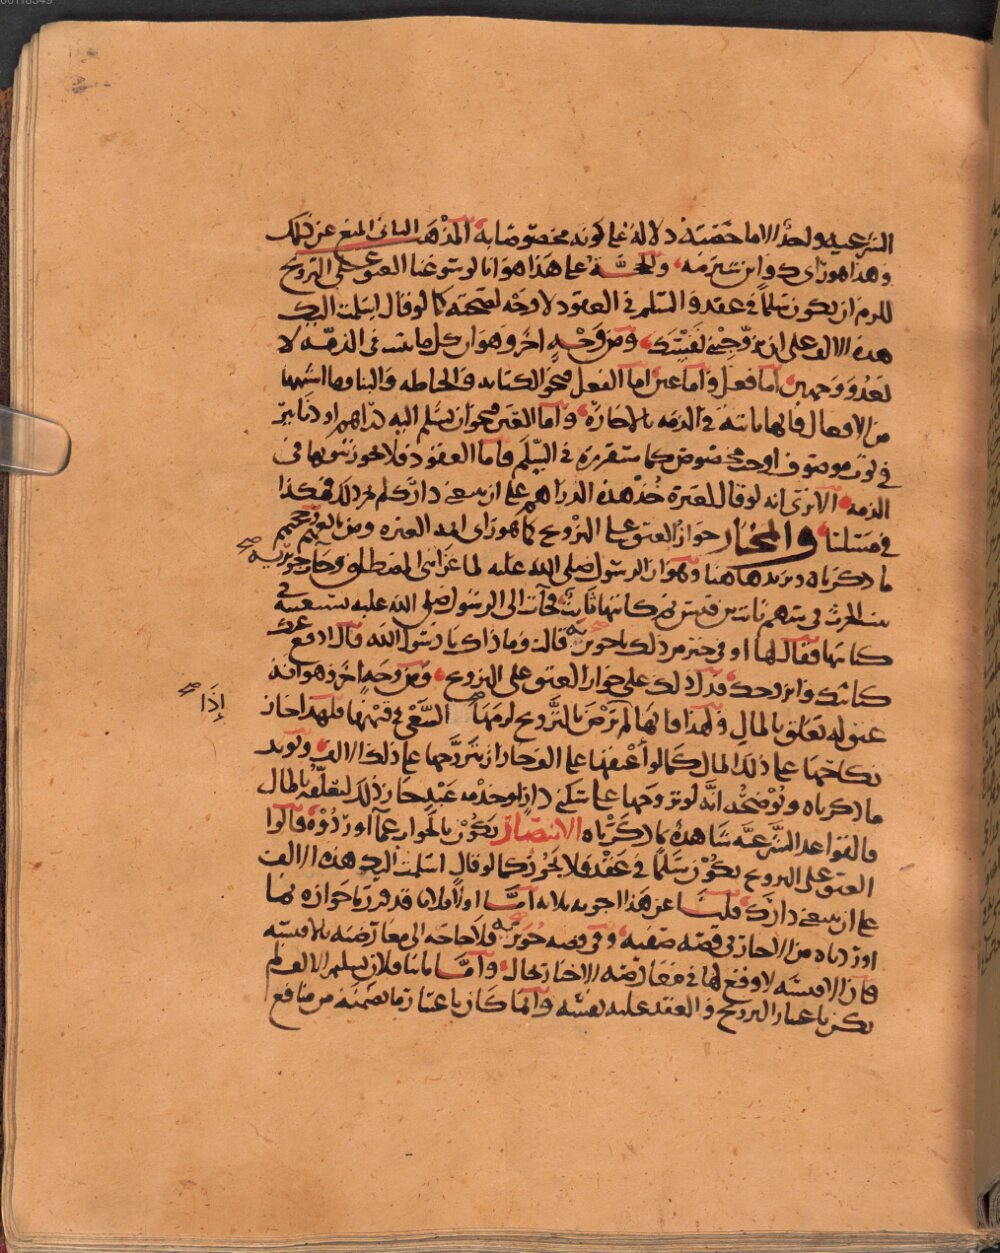 الشرعية ولحد الاماخصته دلالة على كونه مخصوصا به المذهب الثاني المنع عن ذلك
وهذا هو رأي وابن شبرمه والحجة على هذا هو انا لو سوغنا العتق على التزويج
للزم ان يكون سلما في عقد والسلم في العقود لا وجه لصحته كما لو قال اسلمت اليك
هذه الالف على ان تزوجني نفسك ومن وجه اخر وهو ان كل ما يثبت في الذمة لا
يعدو وجهين اما فعل واما عين اما الفعل فنحو الكتابه والخياطه والبنا وما اشبهها
من الافعال فانها ثابتة في الذمه بالاجارة واما العين فنحو ان يسلم اليه دراهم او دنانير
في ثوب موصوف او حب مخصوص كما سنقرره في السلم فاما العقود فلا يجوز ثبوتها في
الذمه الا ترى انه لو قال لغيره خذ هذه الدراهم على ان تبيعني دارك لم يجز ذلك فهكذا
في مسئلتنا والمختار جواز العتق على التزويج كما هو راي ائمة العتره ومن تابعهم وحجتهم
ما ذكرناه ونزيد هاهنا وهو ان الرسول صلى الله عليه لما غزا بني المصطلق وحاز جويريه
بنت الحرث في سهم ثابت بن قيس ثم كاتبها ثابت فجاءت الى الرسول صلى الله عليه تستعينه في
كتابتها فقال لها او في خير من ذلك يا جويريه قالت وما ذاك يا رسول الله قال ادفع عنك
كتابتك واتزوجك فدل ذلك على جواز العتق على التزويج ومن وجه اخر وهو انه
عتق له تعلق بالمال ولهذا فانها لم ترض بالتزويج لزمها السعي في قيمتها فلهذا جاز
إذا
نكاحها على ذلك المال كما لو أعتقها على الف جاز ان يتزوجها على ذلك الالف ويويد
ما ذكرناه ويوضحه انه لو تزوجها على سكنى دار او خدمه عبد جاز ذلك لتعلقه بالمال
والقواعد الشرعيه شاهدة بما ذكرناه الانتصار يكون بالجواب عما اوردوه قالوا
العتق على التزويج يكون سلما في عقد فلا يجوز كما لو قال اسلمت اليك هذه الالف
على ان تبيعني دارك قلنا عن هذا اجوبه ثلاثه اما اولا فلانا قد قررنا جوازه بما
اوردناه من الاخبار في قصه صفيه وفي قصه جويريه فلا حاجه الى معارضته بالاقيسه
فان الاقيسه لا وقع لها في معارضة الاخبار بحال واما ثانيا فلان تسليم الالف لم
يكن باعتبار التزويج والعقد عليه نفسه وانما كان باعتبار ما تضمنه من منافع